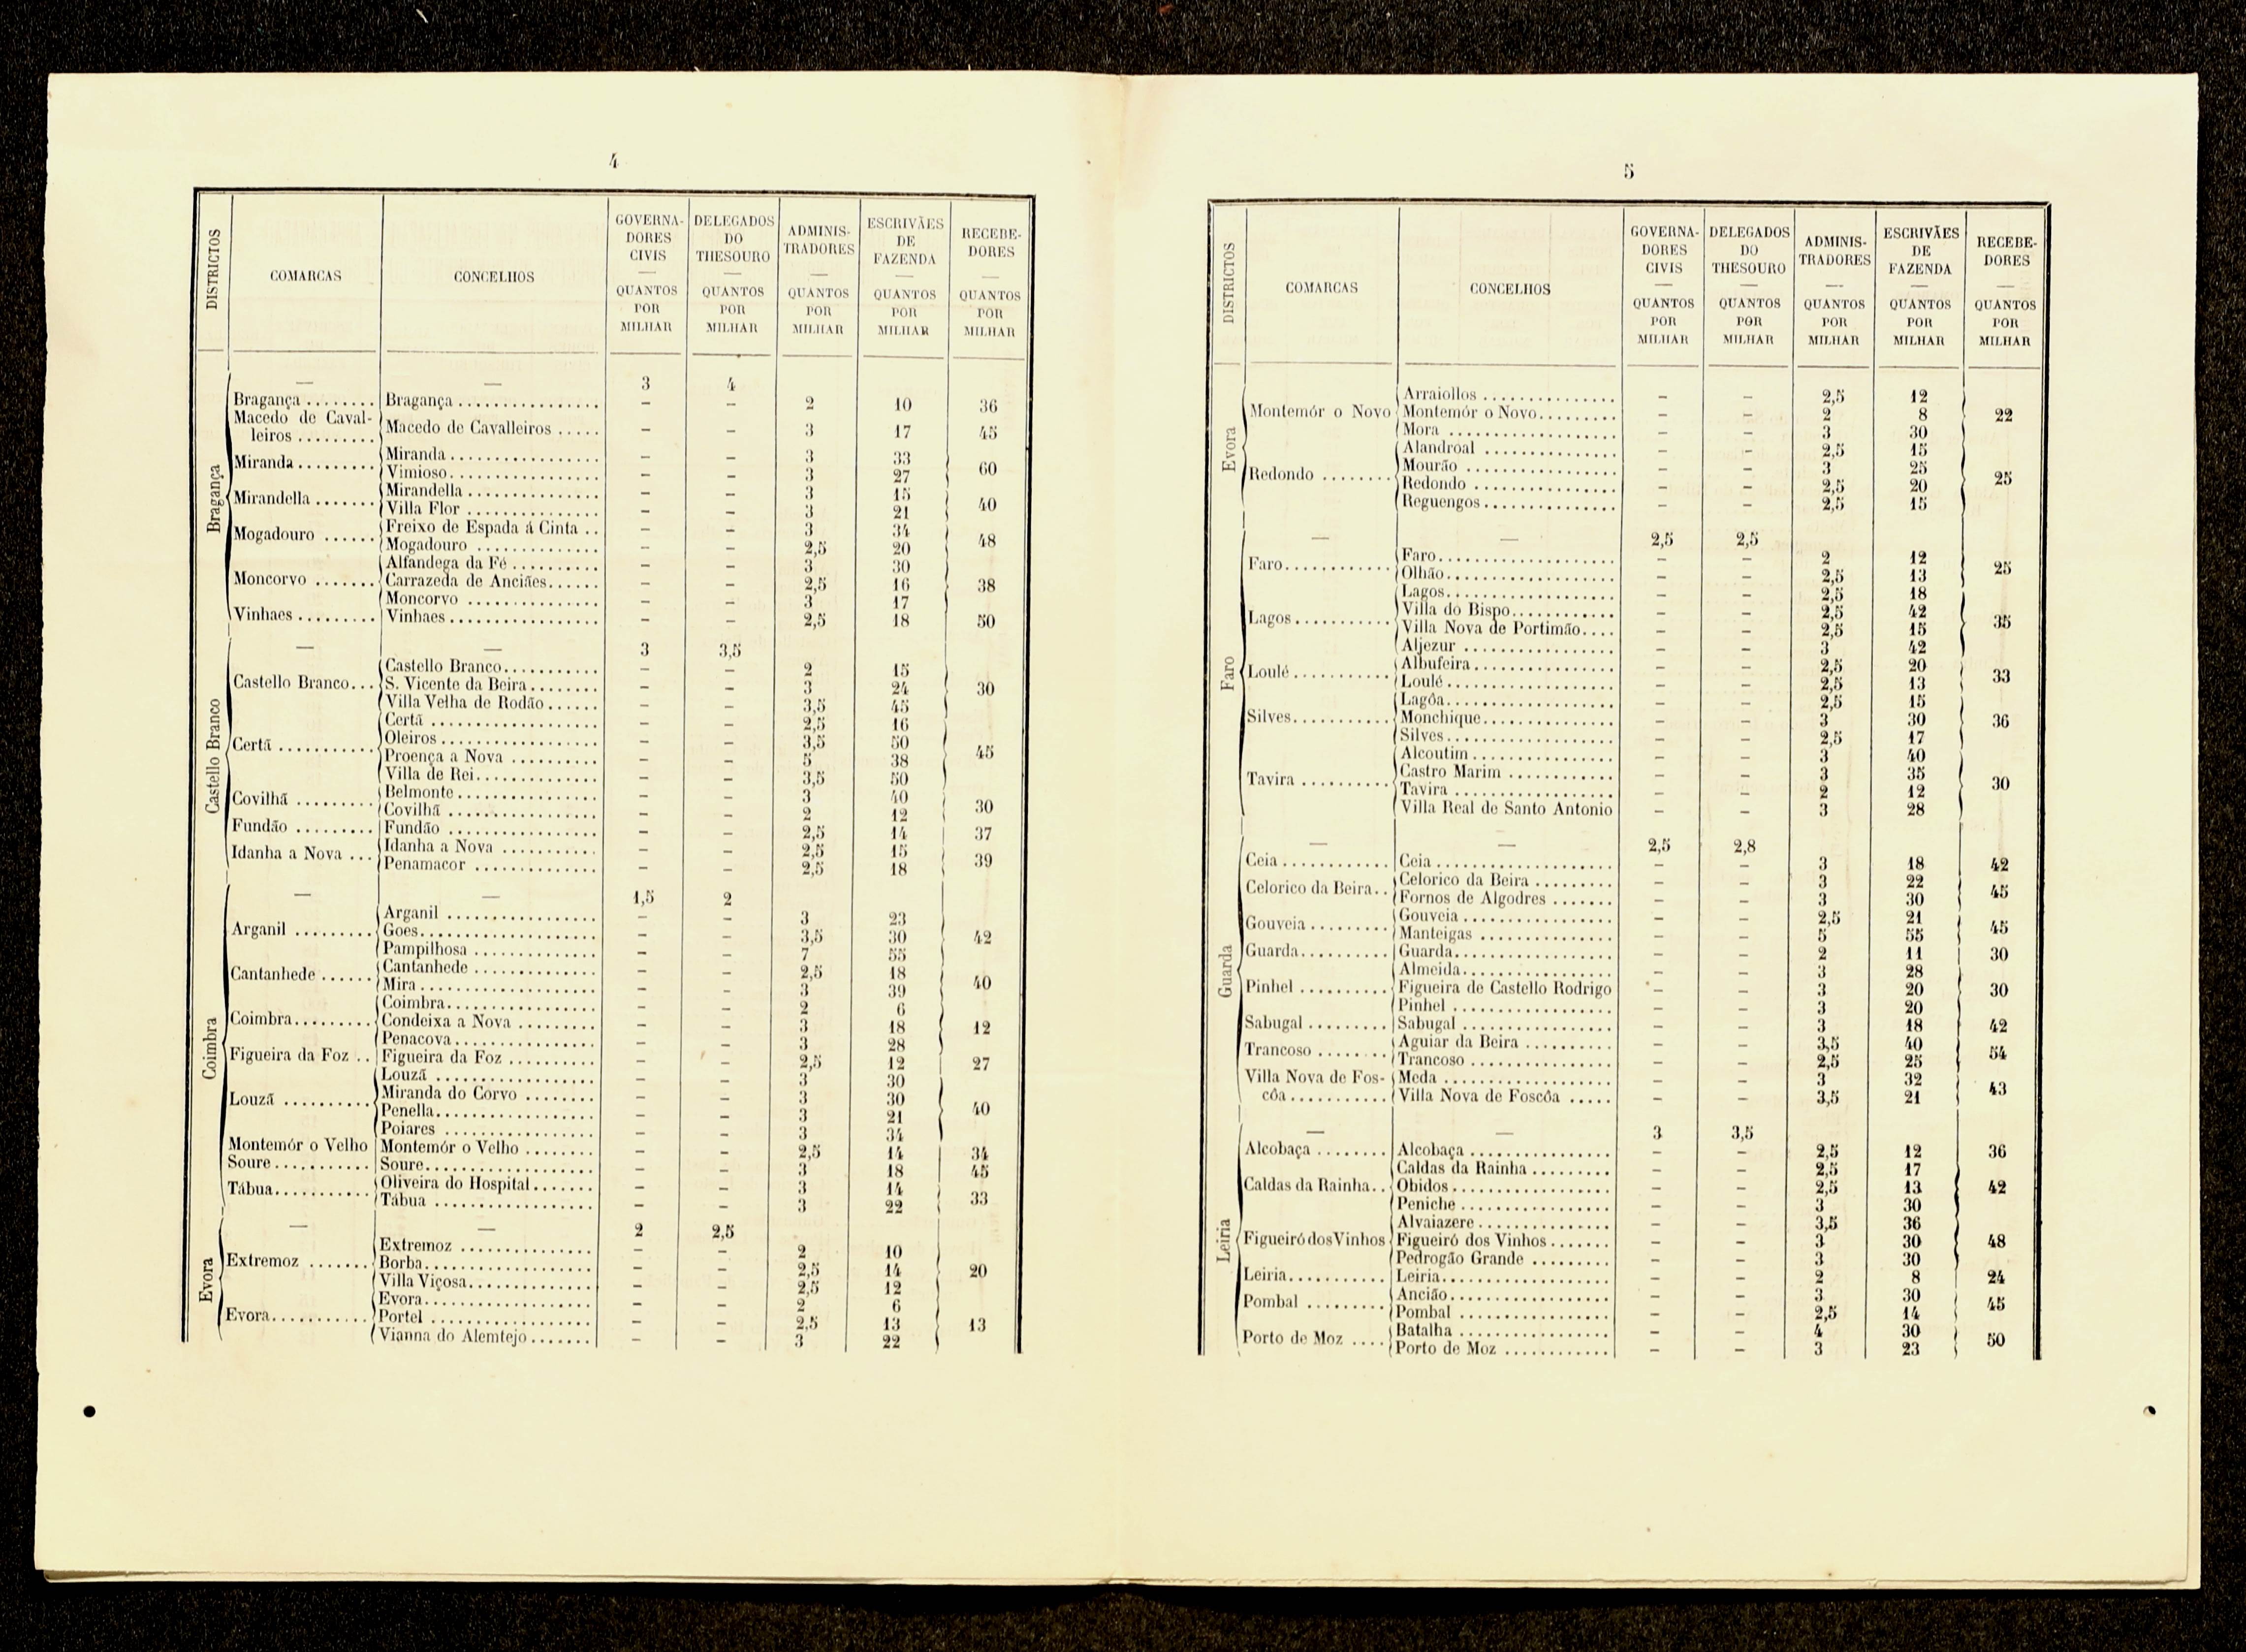 4
DISTRICTOS COMARCAS CONCELHOS GOVERNADORES CIVIS — QUANTOS POR MILHAR DELEGADOS DO THESOURO — QUANTOS POR MILHAR ADMINISTRADORES — QUANTOS POR MILHAR ESCRIVÃES DE FAZENDA — QUANTOS POR MILHAR RECEBEDORES — QUANTOS POR MILHAR
Bragança
— — 3 4
Bragança ........ Bragança ................ – – 2 10 36
Macedo de Cavalleiros ......... Macedo de Cavalleiros ..... – – 3 17 45
Miranda ......... Miranda ................. – – 3 33 60
Vimioso ................. – – 3 27
Mirandella ....... Mirandella ............... – – 3 15 40
Villa Flor ............... – – 3 21
Mogadouro ...... Freixo de Espada á Cinta .. – – 3 34 48
Mogadouro .............. – – 2,5 20
Moncorvo ....... Alfandega da Fé .......... – – 3 30 38
Carrazeda de Anciães...... – – 2,5 16
Moncorvo ............... – – 3 17
Vinhaes ......... Vinhaes ................. – – 2,5 18 50
Castello Branco
— — 3 3,5
Castello Branco... Castello Branco........... – – 2 15 30
S. Vicente da Beira........ – – 3 24
Villa Velha de Rodão ...... – – 3,5 45
Certã ........... Certã ................... – – 2,5 16 45
Oleiros .................. – – 3,5 50
Proença a Nova .......... – – 5 38
Villa de Rei.............. – – 3,5 50
Covilhã ......... Belmonte ................ – – 3 40 30
Covilhã ................. – – 2 12
Fundão ......... Fundão ................. – – 2,5 14 37
Idanha a Nova ... Idanha a Nova ........... – – 2,5 15 39
Penamacor .............. – – 2,5 18
Coimbra
— — 1,5 2
Arganil ......... Arganil ................. – – 3 23 42
Goes.................... – – 3,5 30
Pampilhosa .............. – – 7 55
Cantanhede ...... Cantanhede .............. – – 2,5 18 40
Mira .................... – – 3 39
Coimbra......... Coimbra................. – – 2 6 12
Condeixa a Nova ......... – – 3 18
Penacova................ – – 3 28
Figueira da Foz .. Figueira da Foz .......... – – 2,5 12 27
Louzã .......... Louzã .................. – – 3 30 40
Miranda do Corvo ........ – – 3 30
Penella.................. – – 3 21
Poiares ................. – – 3 34
Montemór o Velho Montemór o Velho ........ – – 2,5 14 34
Soure ........... Soure................... – – 3 18 45
Tábua........... Oliveira do Hospital....... – – 3 14 33
Tábua .................. – – 3 22
Evora
— — 2 2,5
Extremoz ....... Extremoz ............... – – 2 10 20
Borba................... – – 2,5 14
Villa Viçosa.............. – – 2,5 12
Evora........... Evora................... – – 2 6 13
Portel .................. – – 2,5 13
Vianna do Alemtejo ....... – – 3 22
5
DISTRICTOS COMARCAS CONCELHOS GOVERNADORES CIVIS — QUANTOS POR MILHAR DELEGADOS DO THESOURO — QUANTOS POR MILHAR ADMINISTRADORES — QUANTOS POR MILHAR ESCRIVÃES DE FAZENDA — QUANTOS POR MILHAR RECEBEDORES — QUANTOS POR MILHAR
Evora
Montemór o Novo Arraiollos ............... – – 2,5 12 22
Montemór o Novo......... – – 2 8
Mora ................... – – 3 30
Redondo ........ Alandroal ............... – – 2,5 15 25
Mourão ................. – – 3 25
Redondo ................ – – 2,5 20
Reguengos ............... – – 2,5 15
Faro
— — 2,5 2,5
Faro............ Faro.................... – – 2 12 25
Olhão................... – – 2,5 13
Lagos ........... Lagos................... – – 2,5 18 35
Villa do Bispo............ – – 2,5 42
Villa Nova de Portimão.... – – 2,5 15
Aljezur ................. – – 3 42
Loulé ........... Albufeira ................ – – 2,5 20 33
Loulé ................... – – 2,5 13
Silves........... Lagôa................... – – 2,5 15 36
Monchique............... – – 3 30
Silves................... – – 2,5 17
Tavira .......... Alcoutim ................ – – 3 40 30
Castro Marim ............ – – 3 35
Tavira .................. – – 2 12
Villa Real de Santo Antonio – – 3 28
Guarda
— — 2,5 2,8
Ceia ............ Ceia .................... – – 3 18 42
Celorico da Beira.. Celorico da Beira ......... – – 3 22 45
Fornos de Algodres ....... – – 3 30
Gouveia ......... Gouveia ................. – – 2,5 21 45
Manteigas ............... – – 5 55
Guarda.......... Guarda.................. – – 2 11 30
Pinhel .......... Almeida................. – – 3 28 30
Figueira de Castello Rodrigo – – 3 20
Pinhel .................. – – 3 20
Sabugal ......... Sabugal ................. – – 3 18 42
Trancoso ........ Aguiar da Beira .......... – – 3,5 40 54
Trancoso ................ – – 2,5 25
Villa Nova de Foscôa ........... Meda ................... – – 3 32 43
Villa Nova de Foscôa ..... – – 3,5 21
Leiria
— — 3 3,5
Alcobaça ........ Alcobaça ................ – – 2,5 12 36
Caldas da Rainha.. Caldas da Rainha ......... – – 2,5 17 42
Obidos .................. – – 2,5 13
Peniche ................. – – 3 30
Figueiró dos Vinhos Alvaiazere ............... – – 3,5 36 48
Figueiró dos Vinhos ....... – – 3 30
Pedrogão Grande ......... – – 3 30
Leiria........... Leiria................... – – 2 8 24
Pombal ......... Ancião .................. – – 3 30 45
Pombal ................. – – 2,5 14
Porto de Moz .... Batalha ................. – – 4 30 50
Porto de Moz ............ – – 3 23